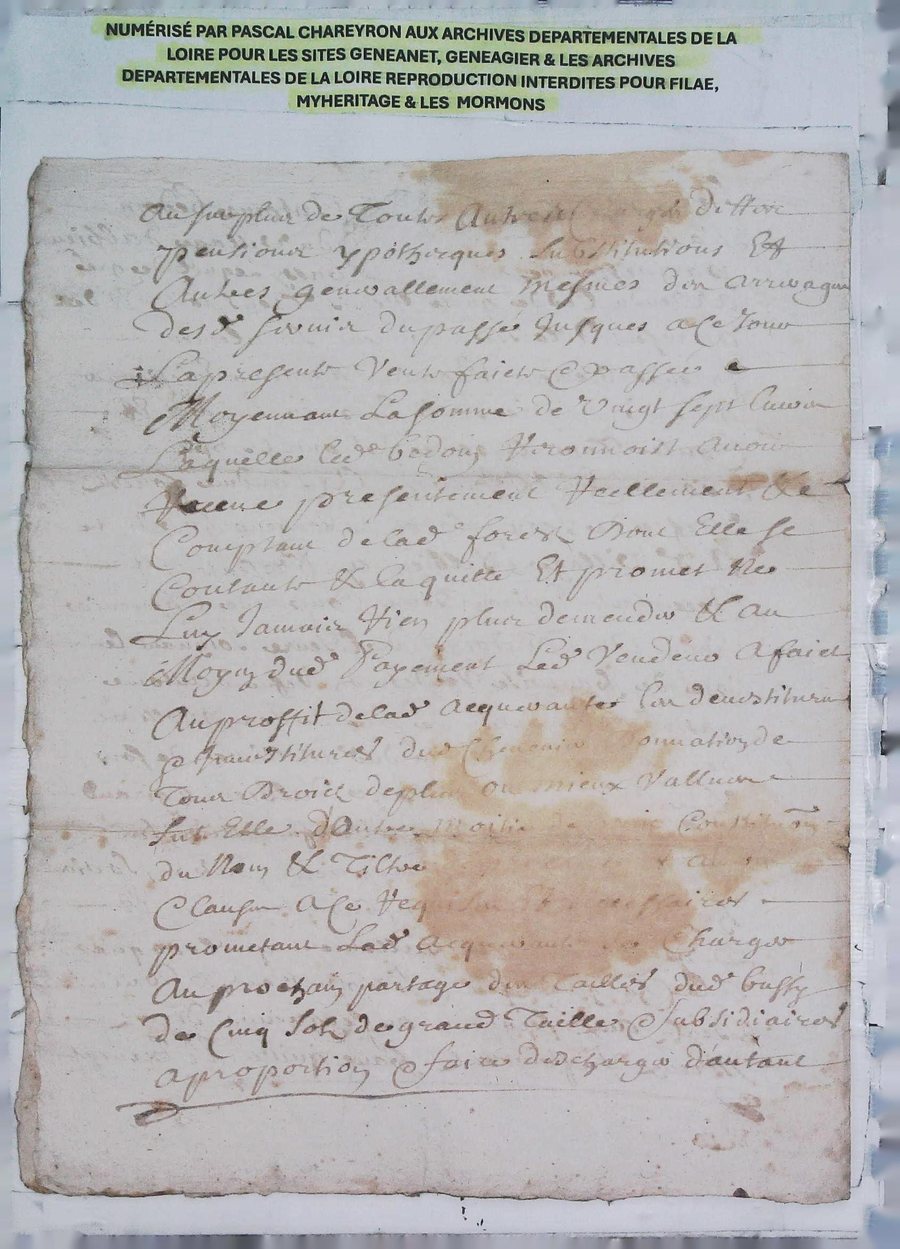 NUMÉRISÉ PAR PASCAL CHAREYRON AUX ARCHIVES DEPARTEMENTALES DE LA
LOIRE POUR LES SITES GENEANET, GENEAGIER & LES ARCHIVES
DEPARTEMENTALES DE LA LOIRE REPRODUCTION INTERDITES POUR FILAE,
MYHERITAGE & LES MORMONS
Au surplus de Toutes Autres
pentions ypotheeques substitutions Et
Autres generallement mesmes des arreirages
des d servis du passé Jusques a Ce Jour
La presente Vente faicte & passée
Moyennant La somme de Vingt sept livres
Laquelle led
presentement Reellement &
Comptant de lad forest Dont Elle se
Contante & la quitte Et promet Ne
Luy Jamais Rien plus demender & au
Moyen dud Payement Led Vendeur A faict
Au proffit de lad acquerante les devestitures
& Investitures dud donnation de
Tous Droictz de plus ou mieux Vallue
fut Elle d'Autre moitié de
du Nom & Tiltre
Clauses a Ce Requises Et necessaires
prometant Lad acquerante se Charger
Au prochain partage des Tailles dud bussy
de Cinq Solz de grand Taille & subsidiaires
a proportion & faire descharger d'autant